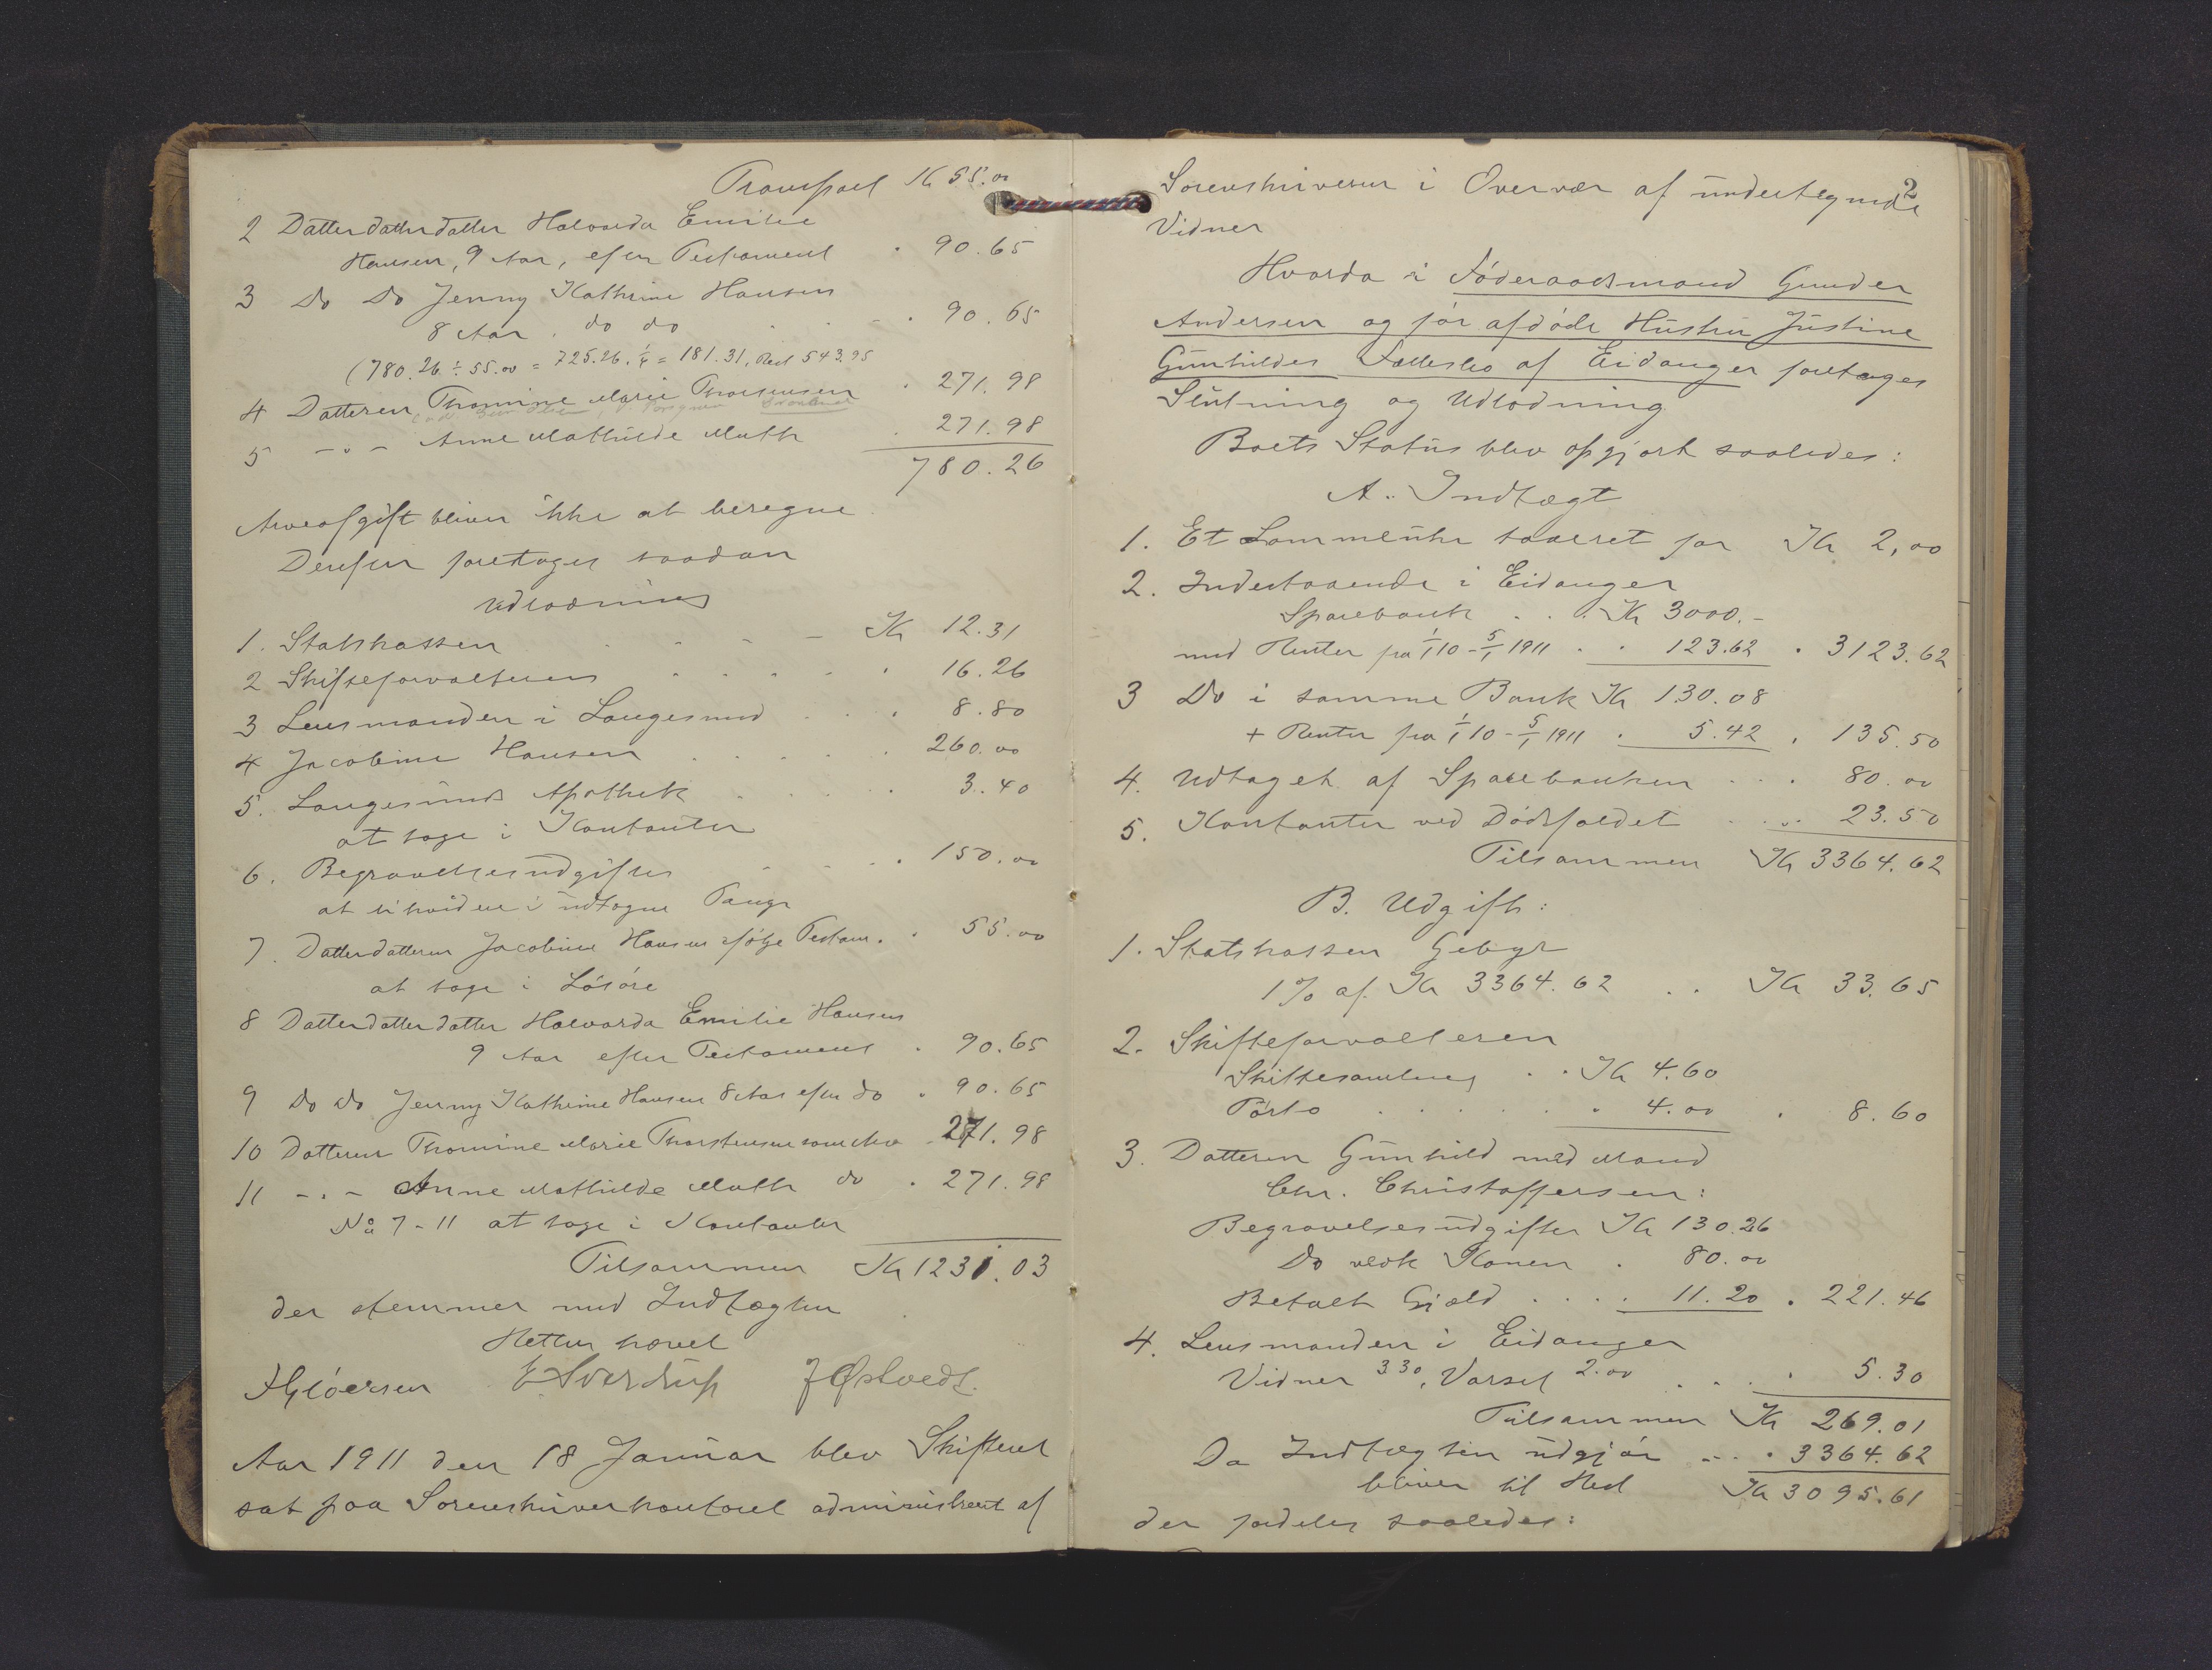 Transport K 55.00
2 Datterdatterdatter Halvarda Emilie
Hansen, 9 Aar, efter Testament . 90.65
3 Do Do Jenny Kathrine Hansen
8 Aar . do do . . - . 90.65
(780.26 ÷ 55.00 = 725.26. ¼ = 181.31, Rest 543.95
4 Datteren Thomine Marie Thorstensen . 271.98
5 - " - Anne Mathilde Muth . 271.98
780.26
Arveafgift bliver ikke at beregne
Derefter foretages saadan
Udlodning
1. Statskassen . - - - Kr 12.31
2 Skifteforvalteren . . . . . 16.26
3 Lensmanden i Langesund . . . 8.80
4 Jacobine Hansen . . . . . 260.00
5. Langesunds Apothek . . . . 3.40
at tage i Kontanter
6. Begravelsesudgifter . . . . 150.00
at likvidere i udtagne Penge
7. Datterdatteren Jacobine Hansen ifølge Testam. . 55.00
at tage i Løsøre
8 Datterdatterdatter Halvarda Emilie Hansen
9 Aar efter Testament . 90.65
9 Do Do Jenny Kathrine Hansen 8 Aar efter do . 90.65
10 Datteren Thomine Marie Thorstensen som Arv . 271.98
11 - " - Anne Mathilde Muth do . 271.98
No 7-11 at tage i Kontanter
Tilsammen Kr 1231.03
der stemmer med Indtægten
Retten hævet
E Sverdrup J Østvedt.
Aar 1911 den 18 Januar blev Skifteret
sat paa Sorenskriverkontoret administreret af
2
Sorenskriveren i Overvær af undertegnede
Vidner
Hvorda i Føderaadsmand Gunder
Andersen og før afdøde Hustru Justine
Gunhildes Fællesbo af Eidanger foretages
Slutning og Udlodning
Boets Status blev opgjort saaledes:
A. Indtægt
1. Et Lommeuhr taxeret for Kr 2,00
2. Indestaaende i Eidanger
Sparebank . . . Kr 3000.-
med Renter fra 1/1 10 - 5/1 1911 . . 123.62 . 3123.62
3 Do i samme Bank Kr 130.08
+ Renter fra 1/1 10 - 5/1 1911 . 5.42 . 135.50
4. Udtaget af Sparebanken . . . 80.00
5. Kontanter ved Dødsfaldet . . . . 23.50
Tilsammen Kr 3364.62
B. Udgift:
1. Statskassen Gebyr
1% af Kr 3364.62 . . Kr 33.65
2. Skifteforvalteren
Skiftesamling . . Kr 4.60
Porto . . . . . . 4.00 . 8.60
3. Datteren Gunhild med Mand
Chr. Christoffersen:
Begravelsesudgifter Kr 130.26
Do vedk Konen . 80.00
Betalt Gjæld . . . . 11.20 . 221.46
4. Lensmanden i Eidanger
Vidner 3.30, Varsel 2.00 . . . . 5.30
Tilsammen Kr 269.01
Da Indtægten udgjør . . . 3364.62
bliver til Rest Kr 3095.61
der fordeles saaledes: